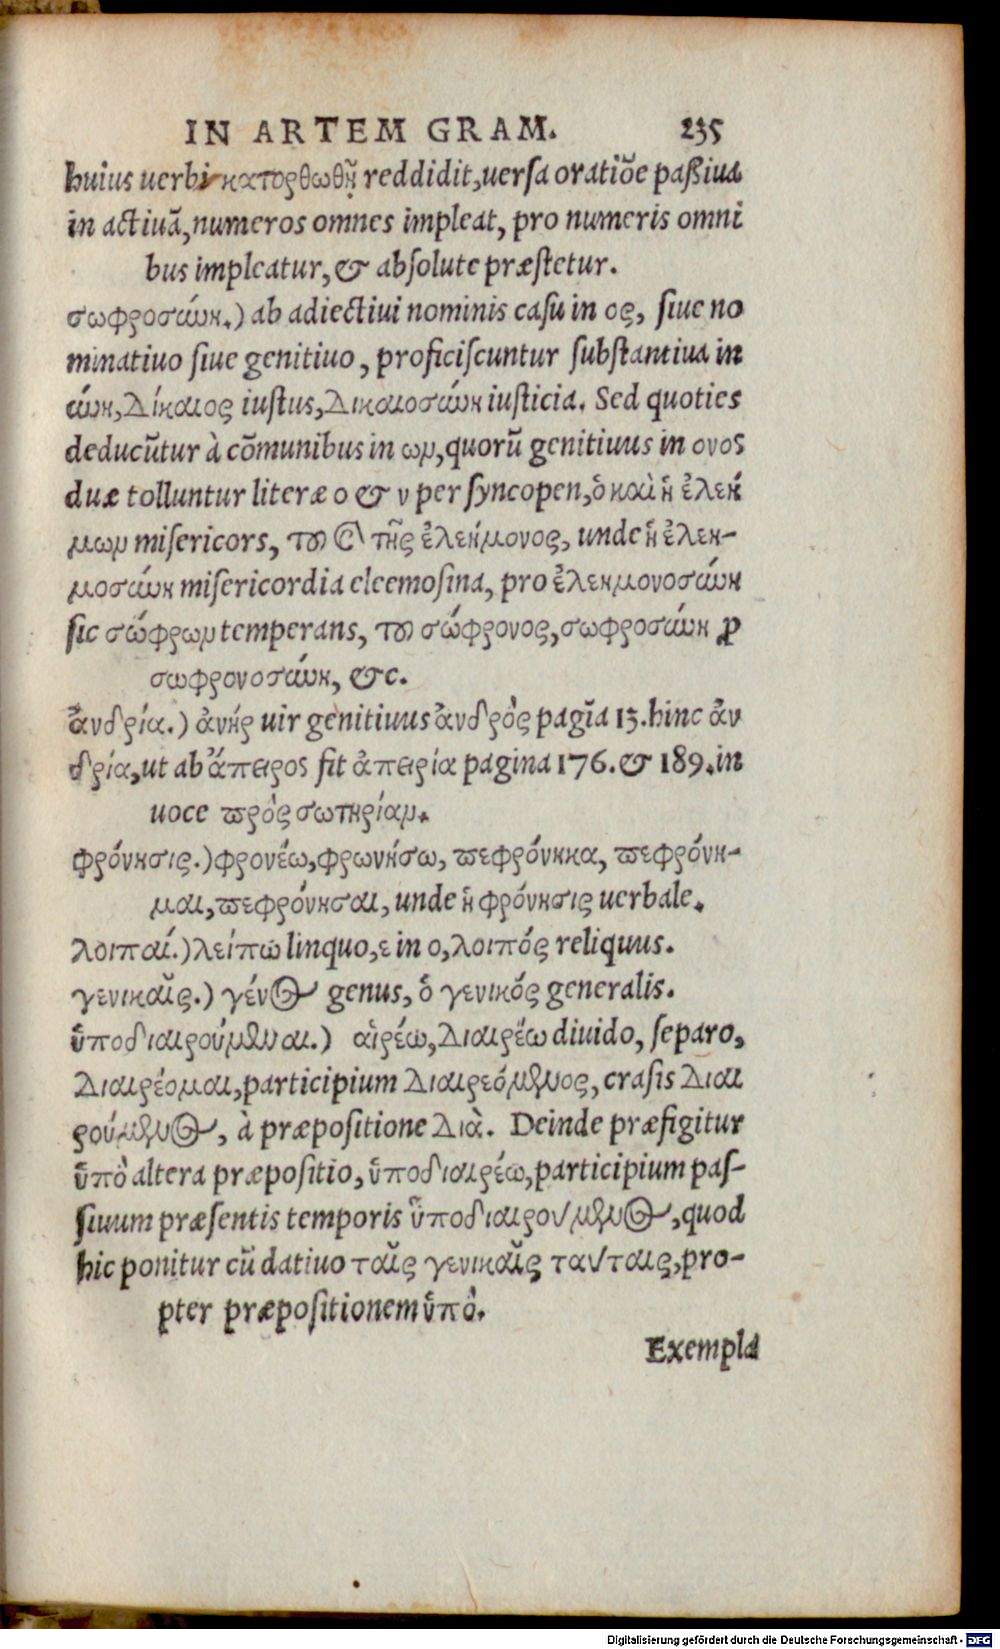 IN ARTEM GRAM. 235
huius uerbi κατορθωθῇ reddidit, uersa oratiõe paßiua
in actiuã, numeros omnes impleat, pro numeris omni
bus impleatur, & absolute præstetur.
σωφροσύνη.) ab adiectiui nominis casu in ος, siue no
minatiuo siue genitiuo, proficiscuntur substantiua in
σύνη, Δίκαιος iustus, Δικαιοσύνη iusticia. Sed quoties
deducũtur à cõmunibus in ων, quorũ genitiuus in ονος
duæ tolluntur literæ ο & ν per syncopen, ὁ καὶ ἡ ἐλεή
μων misericors, τοῦ & τῆς ἐλεήμονος, unde ἡ ἐλεη-
μοσύνη misericordia eleemosina, pro ἐλεημονοσύνη
sic σώφρων temperans, τοῦ σώφρονος, σωφροσύνη ꝓ
σωφρονοσύνη, &c.
ἀνδρία.) ἀνήρ uir genitiuus ἀνδρὸς pagĩa 13. hinc ἀν
δρία, ut ab ἄπειρος fit ἀπειρία pagina 176. & 189. in
uoce πρὸς σωτηρίαν.
φρόνησις.) φρονέω, φρωνήσω, πεφρόνηκα, πεφρόνη-
μαι, πεφρόνησαι, unde ἡ φρόνησις uerbale.
λοιπαί.) λείπω linquo, ε in ο, λοιπός reliquus.
γενικαῖς.) γένος genus, ὁ γενικός generalis.
ὑποδιαιρούμεναι.) αἱρέω, Διαιρέω diuido, separo,
Διαιρέομαι, participium Διαιρεόμενος, crasis Διαι
ρούμενος, à præpositione Διὰ. Deinde præfigitur
ὑπὸ altera præpositio, ὑποδιαιρέω, participium pas-
siuum præsentis temporis ὑποδιαιρούμενος, quod
hic ponitur cũ datiuo ταῖς γενικαῖς ταύταις, pro-
pter præpositionem ὑπὸ.
Exempla
Digitalisierung gefördert durch die Deutsche Forschungsgemeinschaft - DFG